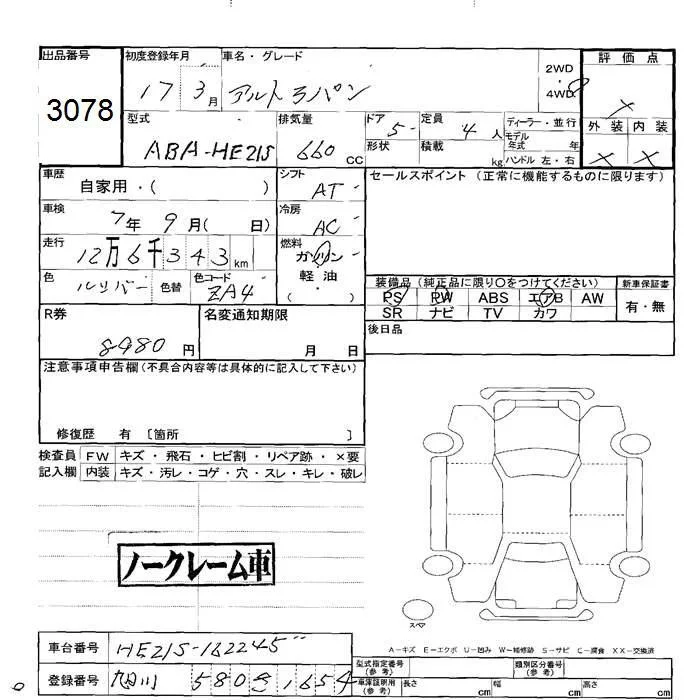 出品番号 初度登録年月 車名・グレード 評価点
3078 17 3月 アルトラパン 2WD 4WD
X
型式 排気量 ドア 5 定員 4人 ディーラー・並行 外装 内装
ABA-HE21S 660cc 形状 積載 kg モデル年式 年 X X
ハンドル 左・右
車歴 自家用・( ) シフト AT セールスポイント (正常に機能するものに限ります)
車検 7年 9月( 日) 冷房 AC
走行 12万6千343km 燃料 ガソリン
色 色替 色コード ZA4 軽油
( )
装備品 (純正品に限り〇をつけてください) 新車保証書
PS PW ABS エアB AW 有・無
SR ナビ TV カワ
R券 8980円 名変通知期限 月 日 後日品
注意事項申告欄(不具合内容等は具体的に記入して下さい)
修復歴 有 〔箇所 〕
検査員 FW キズ・飛石・ヒビ割・リペア跡・×要
記入欄 内装 キズ・汚レ・コゲ・穴・スレ・キレ・破レ
ノークレーム車
スペア
A-キズ E-エクボ U-凹み W-補修跡 S-サビ C-腐食 XX-交換済
車台番号 HE21S-162245
登録番号 旭川 580 1654
型式指定番号(参考) 類別区分番号(参考)
車庫証明用(参考) 長さ cm 幅 cm 高さ cm